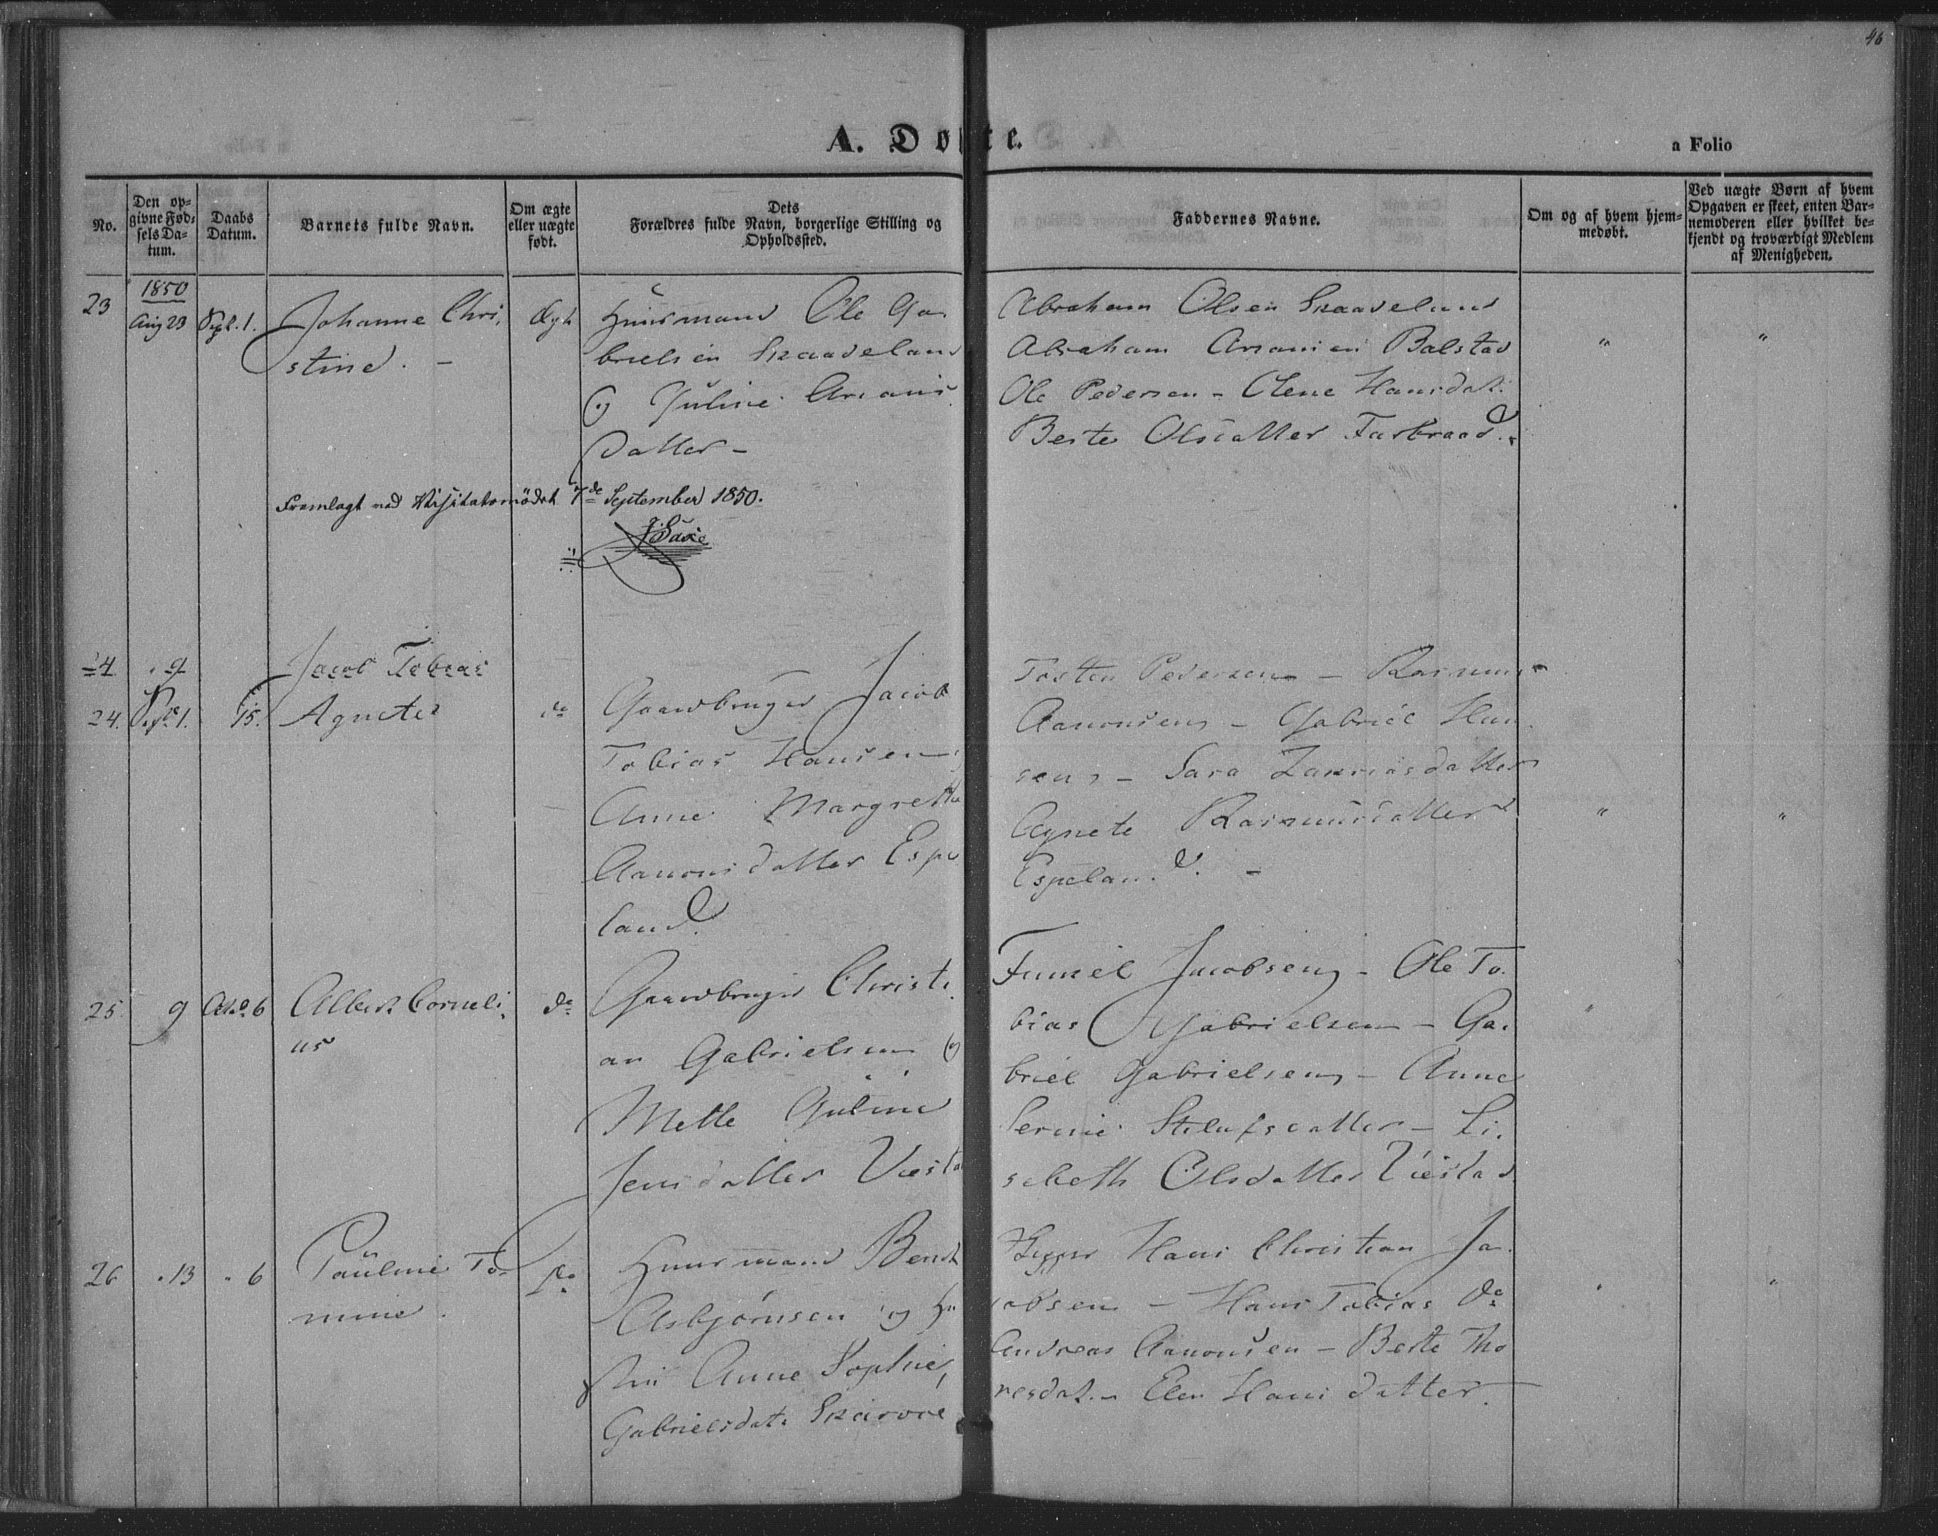 46
A. Døbte.
a Folio
No.
Den opgivne Fødselsdatum.
Daabs Datum.
Barnets fulde Navn.
Om ægte eller uægte født.
Dets Forældres fulde Navn, borgerlige Stilling og Opholdssted.
Faddernes Navne.
Om og af hvem hjemmedøbt.
Ved uægte Børn af hvem Opgaven er skeet, enten Barnemoderen eller hvilket bekjendt og troværdigt Medlem af Menigheden.
1850
23 Aug 23 Sept. 1. Johanne Chri-
stine. -
Ægte
Huusmand Ole Ga-
brielsen Skaadeland
og Juline Arons
datter -
Abraham Olsen Skaadeland
Abraham Balstad
Ole Pedersen - Olene Hansdat.
Berte Olsdatter Farbraad.
Fremlagt ved Visitatsmødet 7de September 1850.
24 " 9 Jacob Tobias
24. Sept. 1. 15. Agnete
do
Gaardbruger Jacob
Tobias Hansen
Anne Margrethe
Aanonsdatter Espe
land.
Tosten Pedersen - Rasmus
Aanonsen - Gabriel Han
sen - Sara Zakriasdatter
Agnete Rasmusdatter
Espeland. -
25. 9 Octo. 6 Albert Corneli-
us
do
Gaardbruger Christi-
an Gabrielsen og
Mette Juline
Jensdatter Viesta
Jacobsen - Ole To-
bias Gabrielsen - Ga-
briel Gabrielsen - Anne
Serine - Li-
sebeth Olsdatter Viestad
26 " 13 " 6 Pauline To-
mine.
do
Huusmand Bendt
Asbjørnsen og Hu
stru Anne Sophie
Gabrielsdat.
Hans Christian Ja-
cobsen - Hans Tobias do
Andreas Aanonsen - Berte Tho
resdat. - Elen Hansdatter.